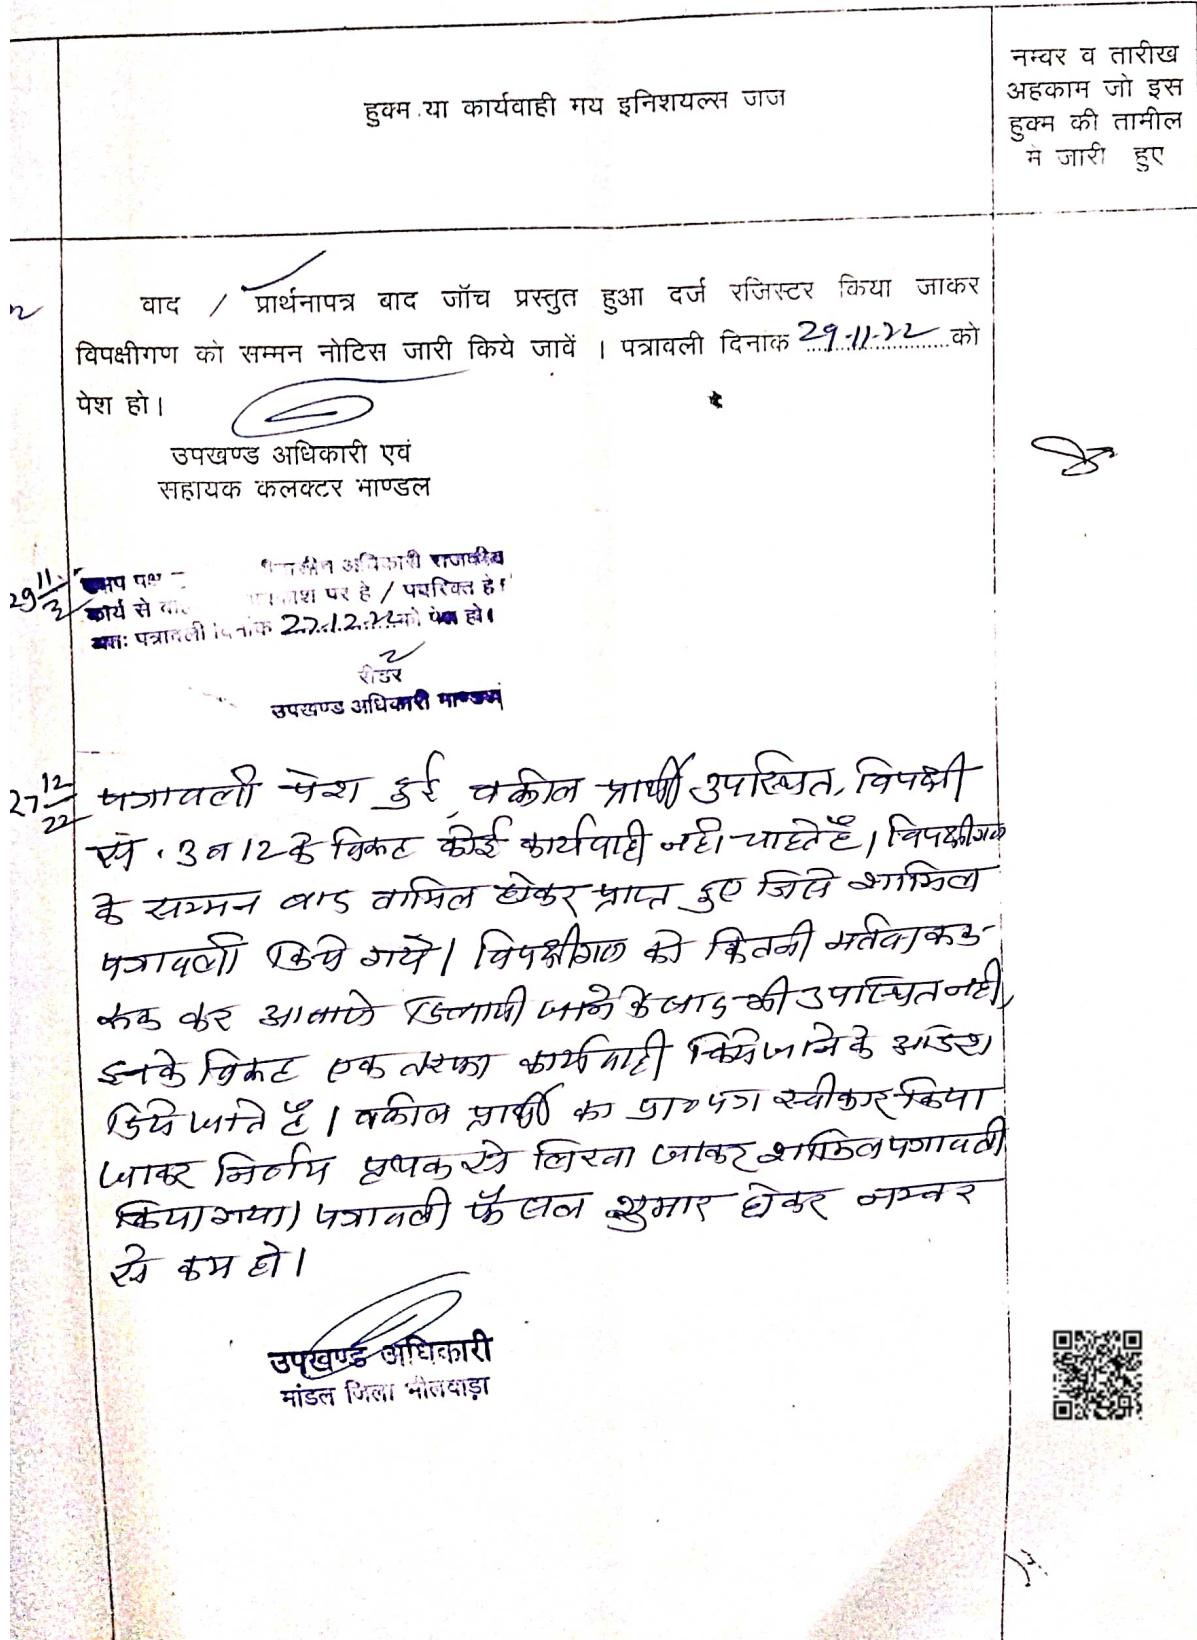 हुक्म या कार्यवाही मय इनिशयल्स जज
नम्वर व तारीख
अहकाम जो इस
हुक्म की तामील
मे जारी हुए
वाद / प्रार्थनापत्र बाद जॉच प्रस्तुत हुआ दर्ज रजिस्टर किया जाकर
विपक्षीगण को सम्मन नोटिस जारी किये जावें । पत्रावली दिनांक 29.11.22 को
पेश हो।
उपखण्ड अधिकारी एवं
सहायक कलक्टर माण्डल
29 11
पक्ष अधिकारी राजकीय
कार्य से पर है / पदरिक्त है।
अतः पत्रावली दिनांक 27.12.22 को पेश हो।
रीडर
उपखण्ड अधिकारी माण्डल
27 12 22
पत्रावली पेश हुई, वकील प्रार्थी उपस्थित, विपक्षी
सं. 3 व 12 के विरूद्ध कोई कार्यवाही नही चाहते हैं। विपक्षीगण
के सम्मन बाद तामिल होकर प्राप्त हुए जिसे शामिल
पत्रावली किये गये। विपक्षीगण को कितनी मर्तबा रूक-
रूक कर आवाजे दिलायी जाने के बाद भी उपस्थित नही,
इनके विरूद्ध एक तरफा कार्यवाही किये जाने के आदेश
दिये जाते है। वकील प्रार्थी का प्रा० पत्र स्वीकार किया
जाकर निर्णय पृथक से लिखा जाकर शामिल पत्रावली
किया गया। पत्रावली फैसल शुमार होकर नम्बर
से कम हो।
उपखण्ड अधिकारी
मांडल जिला भीलवाड़ा